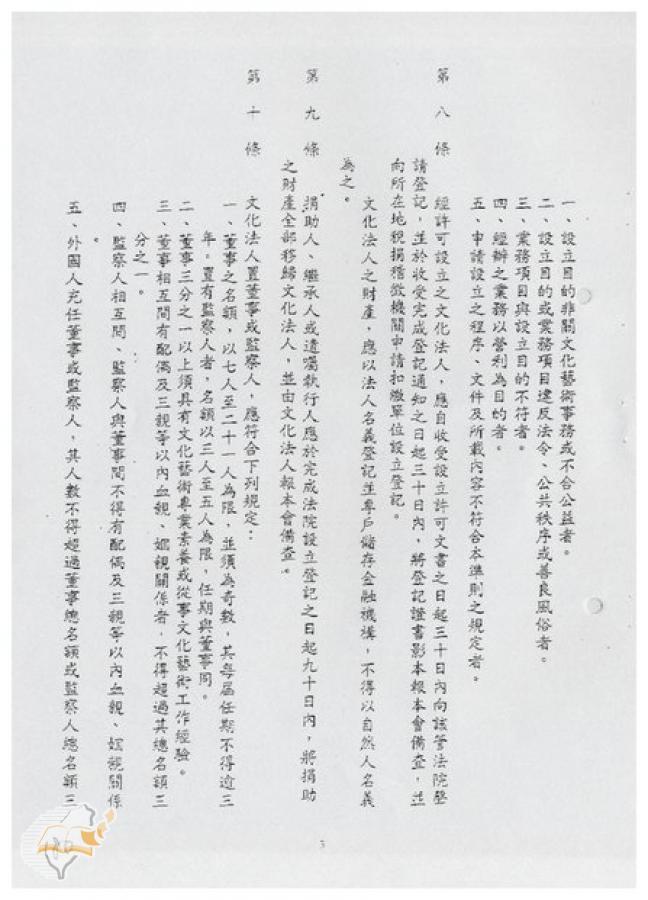 一、設立目的非關文化藝術事務或不合公益者。
二、設立目的或業務項目違反法令、公共秩序或善良風俗者。
三、業務項目與設立目的不符者。
四、經辦之業務以營利為目的者。
五、申請設立之程序、文件及所載內容不符合本準則之規定者。
第八條 經許可設立之文化法人，應自收受設立許可文書之日起三十日內向該管法院聲
請登記，並於收受完成登記通知之日起三十日內，將登記證書影本報本會備查，並
向所在地稅捐稽徵機關申請扣繳單位設立登記。
文化法人之財產，應以法人名義登記並專戶儲存金融機構，不得以自然人名義
為之。
第九條 捐助人、繼承人或遺囑執行人應於完成法院設立登記之日起九十日內，將捐助
之財產全部移歸文化法人，並由文化法人報本會備查。
第十條 文化法人置董事或監察人，應符合下列規定：
一、董事之名額，以七人至二十一人為限，並須為奇數，其每屆任期不得逾三
年。置有監察人者，名額以三人至五人為限，任期與董事同。
二、董事三分之一以上須具有文化藝術專業素養或從事文化藝術工作經驗。
三、董事相互間有配偶及三親等以內血親、姻親關係者，不得超過其總名額三
分之一。
四、監察人相互間、監察人與董事間不得有配偶及三親等以內血親、姻親關係
。
五、外國人充任董事或監察人，其人數不得超過董事總名額或監察人總名額三